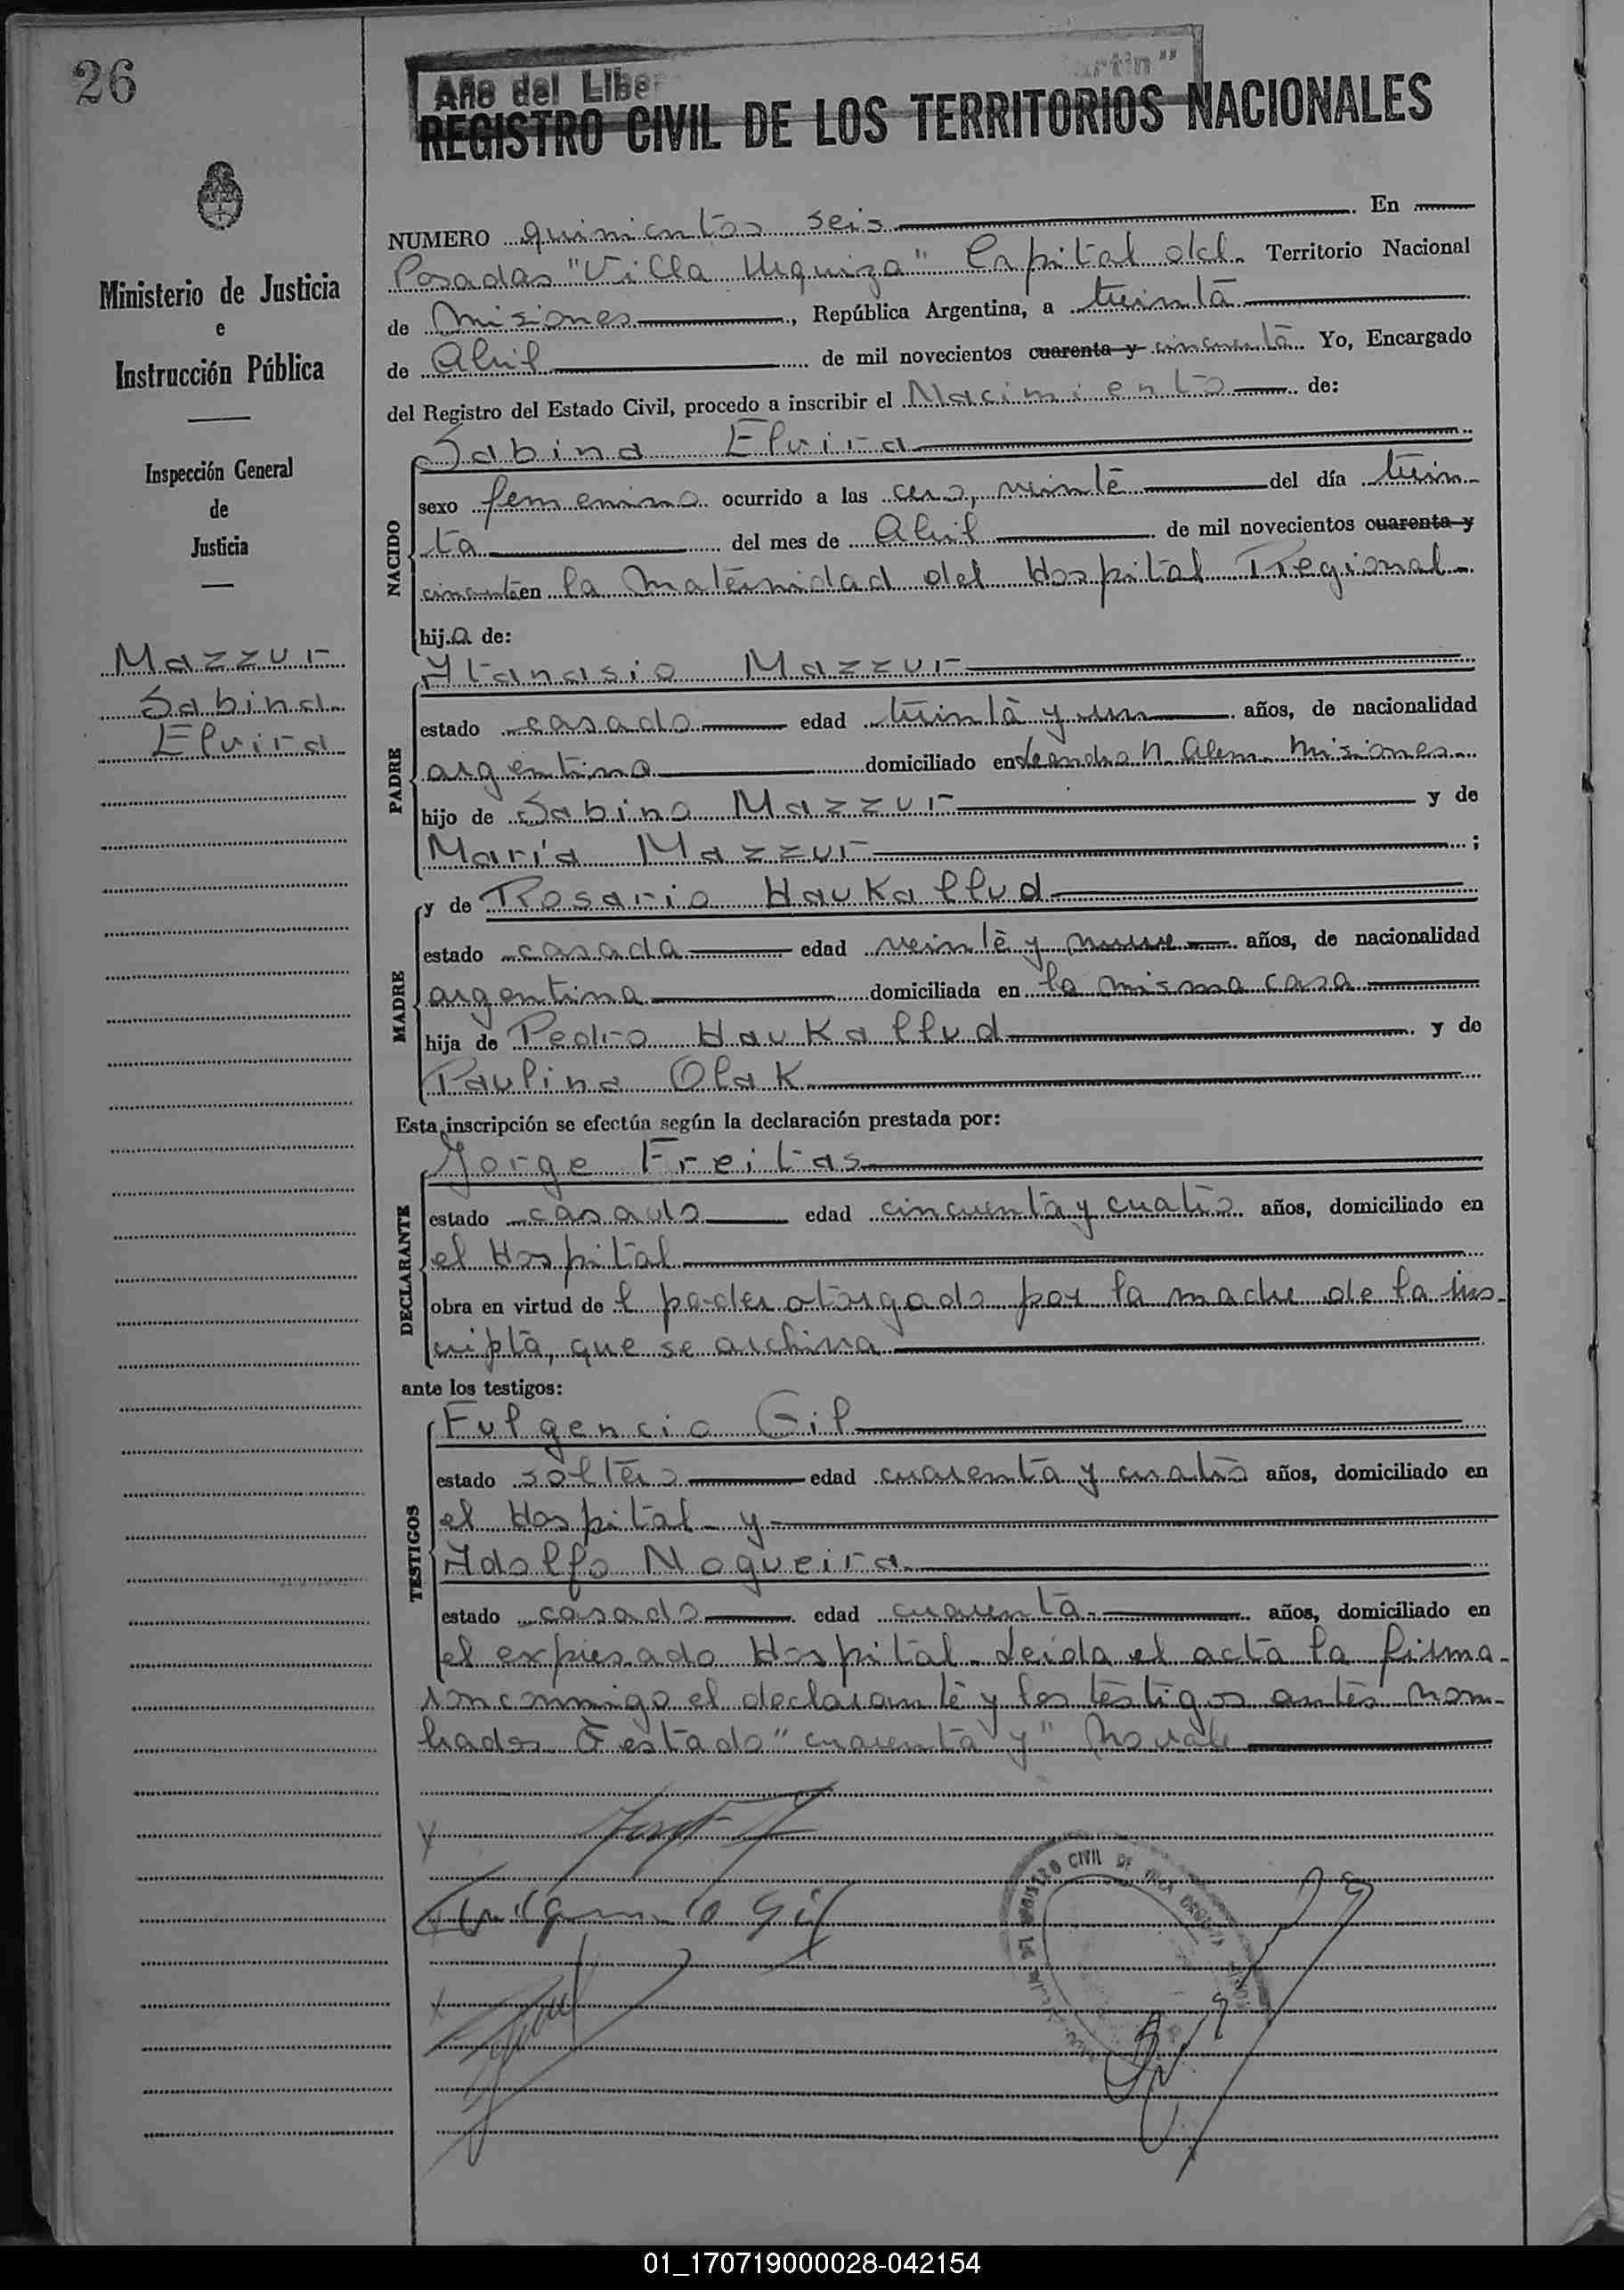 26
Año del Liber
artín"
REGISTRO CIVIL DE LOS TERRITORIOS NACIONALES
Ministerio de Justicia
e
Instrucción Pública
Inspección General
de
Justicia
Mazzur
Sabina
Elvira
NUMERO quinientos seis. En
Posadas "Villa Urquiza" Capital del Territorio Nacional
de Misiones, República Argentina, a treinta
de Abril de mil novecientos cuarenta y cincuenta. Yo, Encargado
del Registro del Estado Civil, procedo a inscribir el Nacimiento de:
NACIDO
Sabina Elvira
sexo femenino ocurrido a las cero, veinte del día trein-
ta del mes de Abril de mil novecientos cuarenta y
cincuenta en la Maternidad del Hospital Regional-
hija de:
PADRE
Atanasio Mazzur
estado casado edad treinta y un años, de nacionalidad
argentina domiciliado en Leandro N. Alem- Misiones-
hijo de Sabino Mazzur y de
María Mazzur ;
MADRE
y de Rosario Haukallud
estado casada edad veinte y nueve años, de nacionalidad
argentina domiciliada en la misma casa
hija de Pedro Haukallud y de
Paulina Olak
Esta inscripción se efectúa según la declaración prestada por:
DECLARANTE
Jorge Freitas
estado casado edad cincuenta y cuatro años, domiciliado en
el Hospital
obra en virtud del poder otorgado por la madre de la ins-
cripta, que se archiva
ante los testigos:
TESTIGOS
Fulgencio Gil
estado soltero edad cuarenta y cuatro años, domiciliado en
el Hospital- y-
Adolfo Nogueira
estado casado edad cuarenta- años, domiciliado en
el expresado Hospital. Leída el acta la firma-
ron conmigo el declarante y los testigos antes nom-
brados. Testado "cuarenta y" No vale
Fulgencio Gil
CIVIL DE
01_170719000028-042154